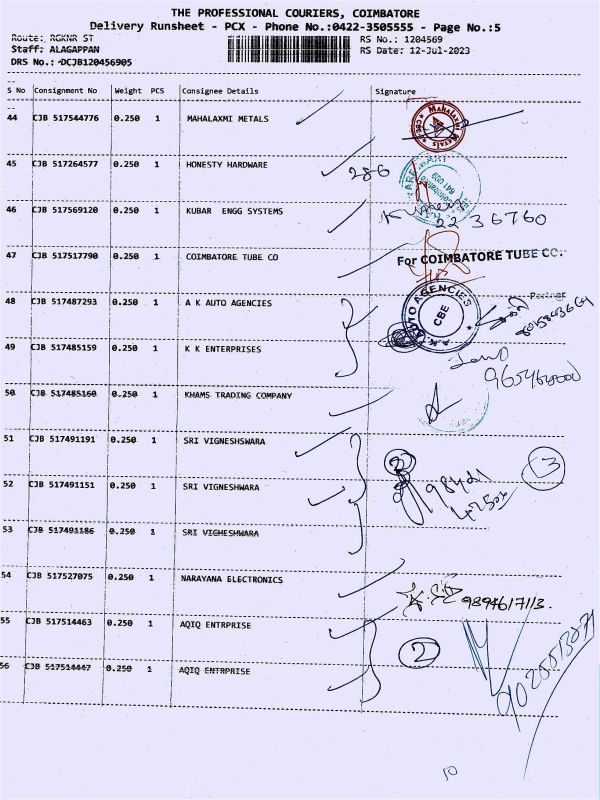 THE PROFESSIONAL COURIERS, COIMBATORE
Delivery Runsheet - PCX - Phone No.:0422-3505555 - Page No.:5
Route: RGKNR ST RS No.: 1204569
Staff: ALAGAPPAN RS Date: 12-Jul-2023
DRS No.: DCJB120456905
S No Consignment No Weight PCS Consignee Details Signature
44 CJB 517544776 0.250 1 MAHALAXMI METALS MAHALAXMI METALS CBE
45 CJB 517264577 0.250 1 HONESTY HARDWARE 286
46 CJB 517569120 0.250 1 KUBAR ENGG SYSTEMS 22 36760
47 CJB 517517790 0.250 1 COIMBATORE TUBE CO For COIMBATORE TUBE CO.
Partner
48 CJB 517487293 0.250 1 A K AUTO AGENCIES A.K. AUTO AGENCIES CBE
49 CJB 517485159 0.250 1 K K ENTERPRISES
50 CJB 517485160 0.250 1 KHAMS TRADING COMPANY
51 CJB 517491191 0.250 1 SRI VIGNESHSWARA 3
52 CJB 517491151 0.250 1 SRI VIGNESHWARA
53 CJB 517491186 0.250 1 SRI VIGHESHWARA
54 CJB 517527075 0.250 1 NARAYANA ELECTRONICS
55 CJB 517514463 0.250 1 AQIQ ENTRPRISE
2
56 CJB 517514447 0.250 1 AQIQ ENTRPRISE
10